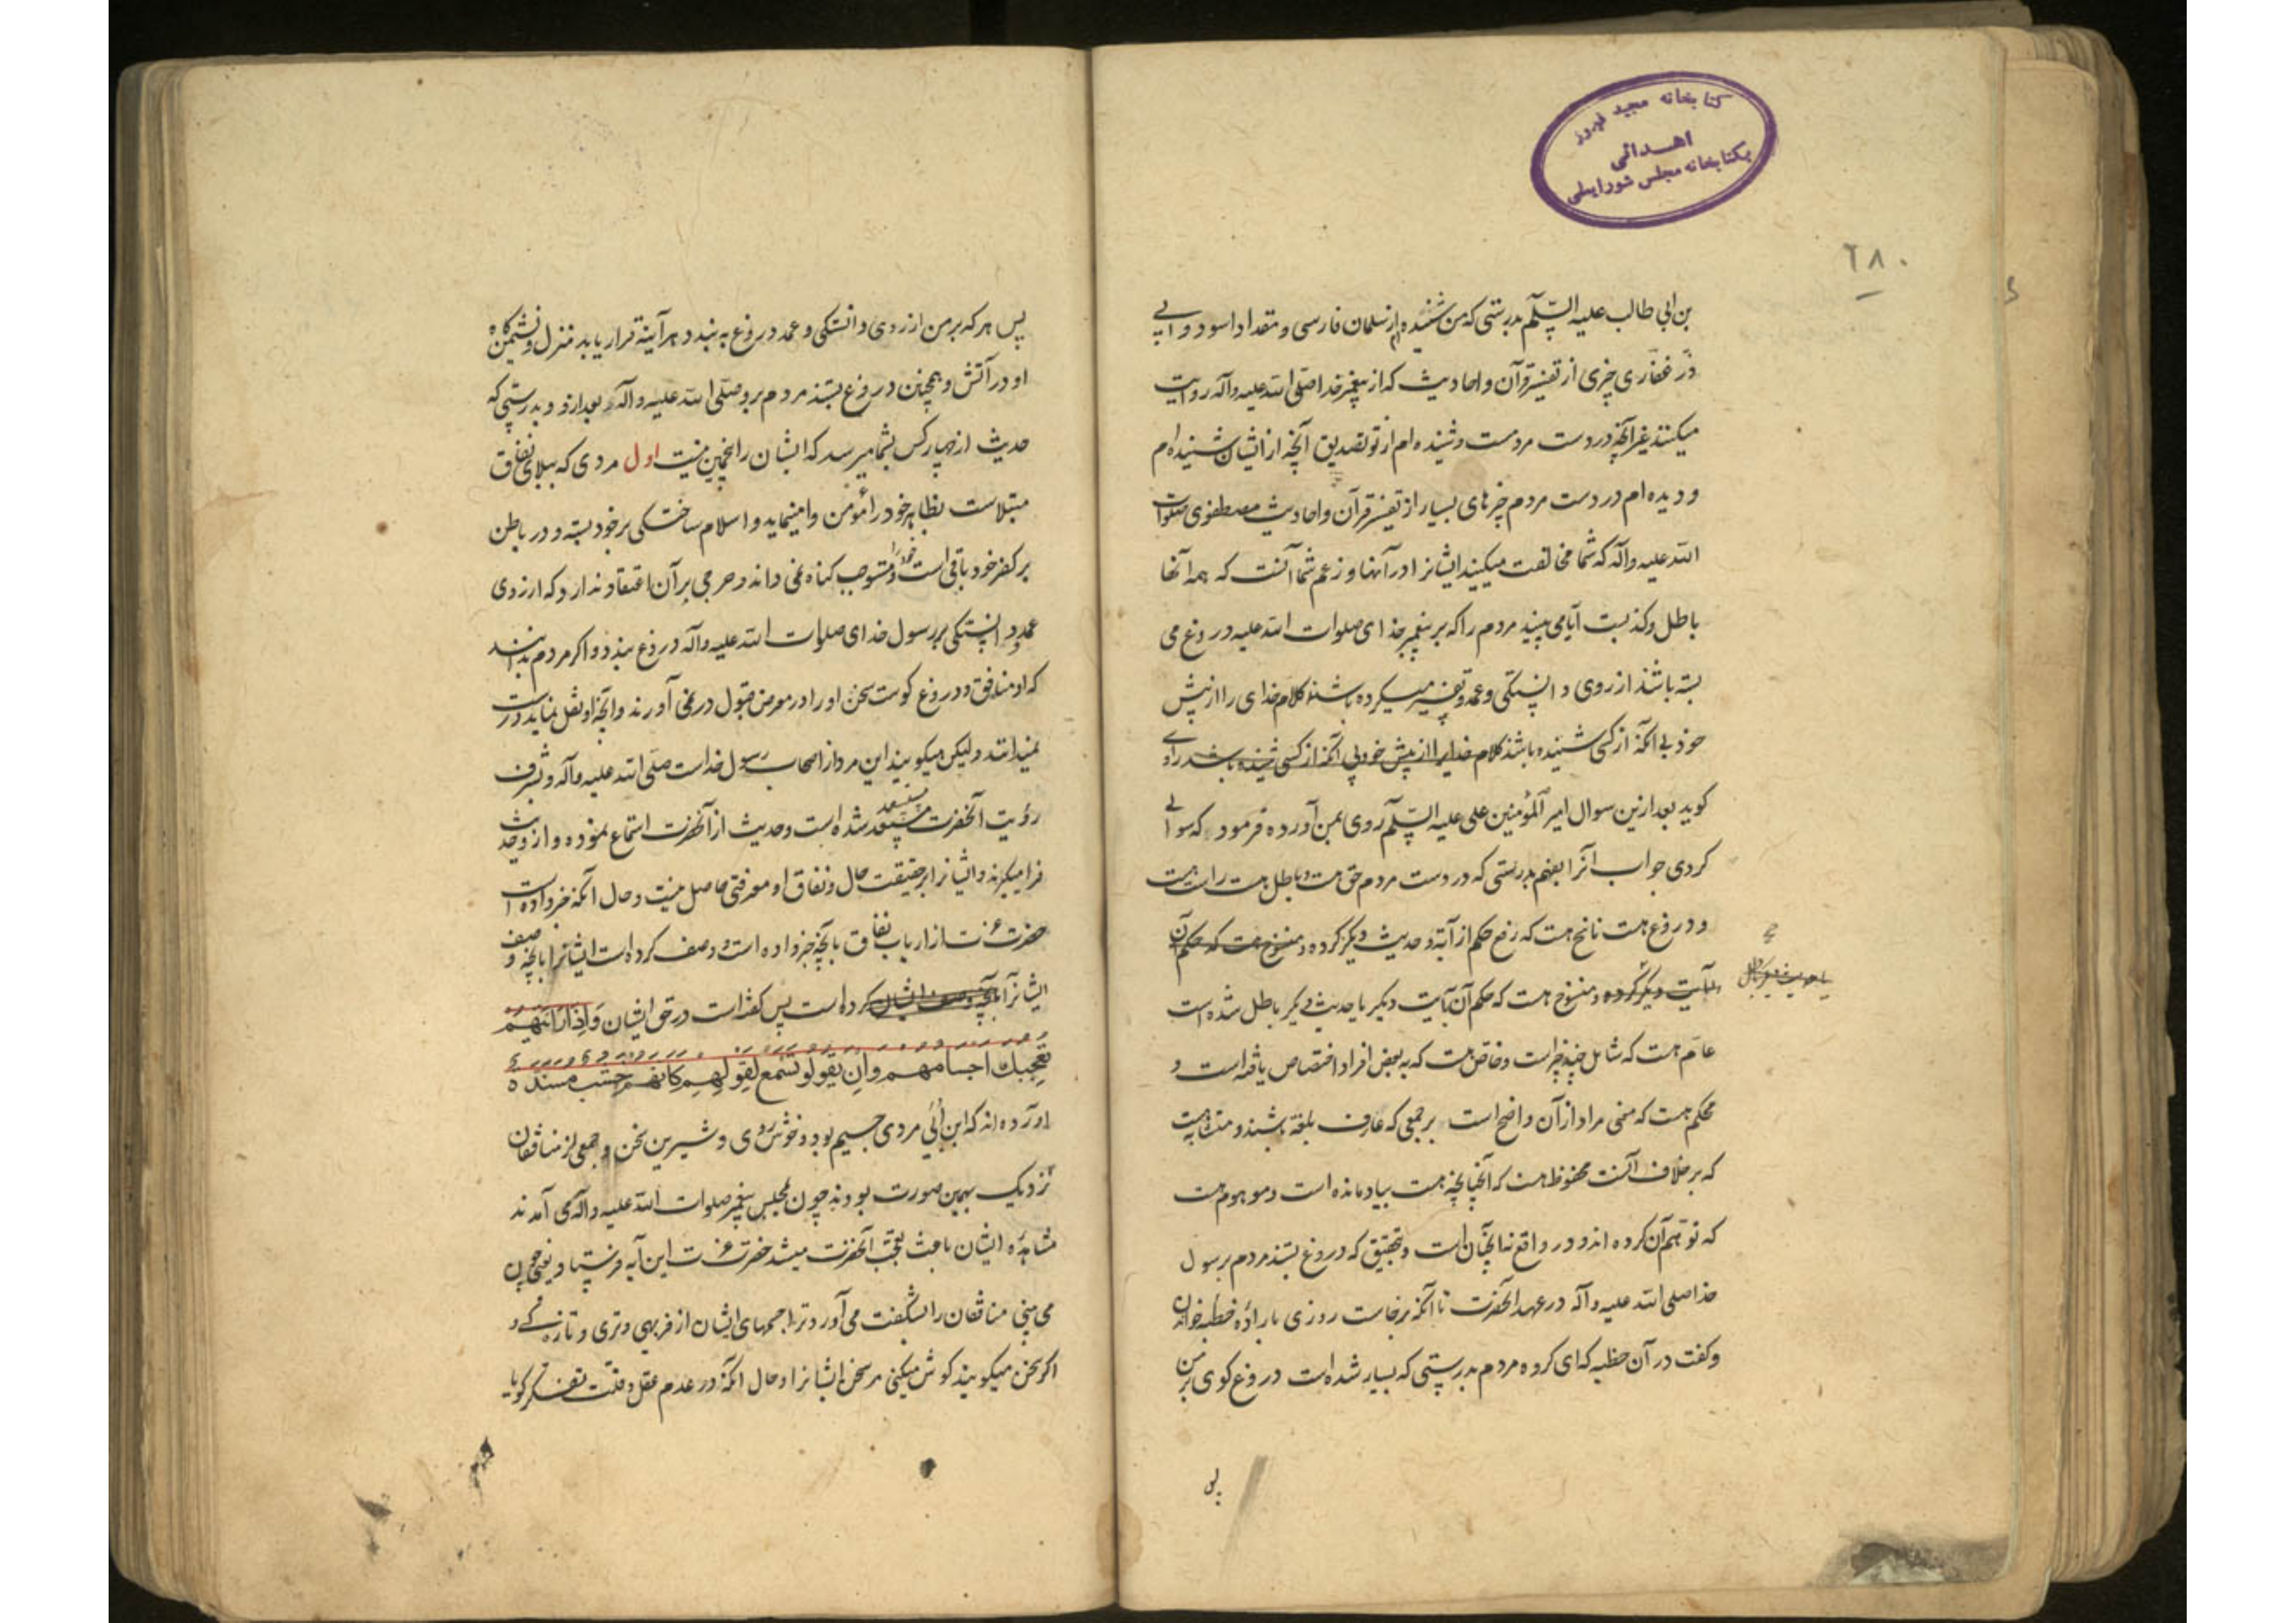 کتابخانه مجید فیروز
اهدائی
بکتابخانه مجلس شورایملی
٦٨٠
بن ابی طالب علیه السّلم بدرستی که من شنیده‌ام از سلمان فارسی و مقداد اسود و ابی
ذر غفاری چیزی از تفسیر قرآن و احادیث که از پیغمبر خدا صلی الله علیه وآله روایت
میکنند غیر آنچه در دست مردمست و شنیده ام از تو تصدیق آنچه از ایشان شنیده‌ام
و دیده ام در دست مردم چیزهای بسیار از تفسیر قرآن و احادیث مصطفوی صلوات
الله علیه وآله که شما مخالفت میکنید ایشانرا در آنها و زعم شما آنست که همه آنها
باطل و کذبست آیا می بینید مردم را که بر پیغمبر خدای صلوات الله علیه دروغ می
بسته باشند از روی دانستگی و عمد و تفسیر میکرده باشند کلام خدای را از پیش
خود بی آنکه از کسی شنیده باشند کلام خدایرا از پیش خود بی آنکه از کسی شنیده باشند راوی
کوید بعد ازین سوال امیر المؤمنین علی علیه السّلم روی بمن آورده فرمود که سوالی
کردی جواب آنرا بفهم بدرستی که در دست مردم حق هست و باطل هست راست هست
و دروغ هست ناسخ هست که رفع حکم از آیه و حدیث دیگر کرده و منسوخ هست که حکم آن
بآیت دیگر کرده و منسوخ هست که حکم آن بآیت دیگر یا حدیث دیگر باطل شده است
عام هست که شامل چند چیز است و خاص هست که به بعض افراد اختصاص یافته است و
محکم هست که معنی مراد از آن واضح است بر جمعی که عارف بلغة باشند و متشابه هست
که بر خلاف آنست محفوظ هست که آنچنانچه هست بیاد مانده است و موهوم هست
که توهم آن کرده اند و در واقع نه آنچنان است و بتحقیق که دروغ بستند مردم برسول
خدا صلی الله علیه وآله در عهد آنحضرت تا آنکه برخاست روزی باراده خطبه خواندن
و کفت در آن خطبه که ای کروه مردم بدرستی که بسیار شده است دروغ کوی بر من
پس
پس هر که بر من از روی دانستگی و عمد دروغ به بندد هر آینه قرار یابد منزل و نشیمن‌گاه
او در آتش و همچنین دروغ بستند مردم برو صلی الله علیه وآله بعد ازو و بدرستی که
حدیث از چهار کس بشما میرسد که ایشان را پنجمین نیست اول مردی که ببلای نفاق
مبتلاست بظاهر خود را مؤمن وامینماید و اسلام ساختگی بر خود بسته و در باطن
بر کفر خود باقی است و خود را مستوجب کناه نمی داند و حرجی بر آن اعتقاد ندارد که از روی
عمد و دانستگی بر رسول خدای صلوات الله علیه وآله دروغ بندد و اکر مردم بدانند
که او منافق و دروغ کوست سخن او را در معرض قبول در نمی آورند و آنچه او نقل نماید درست
نمیدانند ولیکن میکویند این مرد از اصحاب رسول خداست صلی الله علیه وآله و بشرف
رؤیت آنحضرت مستسعد شده است و حدیث از آنحضرت استماع نموده و ازو حدیث
فرا میکیرند و ایشانرا بر حقیقت حال و نفاق او معرفتی حاصل نیست و حال آنکه خبر داده است
حضرت عزت از ارباب نفاق بآنچه خبر داده است و وصف کرده است ایشانرا بآنچه وصف
ایشانرا بآنچه وصف ایشان کرده است پس کفته است در حق ایشان وَاِذَا رَاَیْتَهُمْ
تُعْجِبُكَ اَجْسَامُهُمْ وَاِنْ یَقُولُوا تَسْمَعْ لِقَوْلِهِمْ كَاَنَّهُمْ خُشُبٌ مُسَنَّدَةٌ
آورده اند که ابن اُبَیّ مردی جسیم بود و خوش روی و شیرین سخن و جمعی از منافقان
نزدیک بهمین صورت بودند چون بمجلس پیغمبر صلوات الله علیه وآله می آمدند
مشاهده ایشان باعث تعجب آنحضرت میشد حضرت عزت این آیه فرستاد یعنی چون
می بینی منافقان را بشگفت می آورد ترا جسمهای ایشان از فربهی و تری و تازه کی و
اکر سخن میکویند کوش میکنی مر سخن ایشانرا و حال آنکه در عدم عقل و قلت تفکر کویا